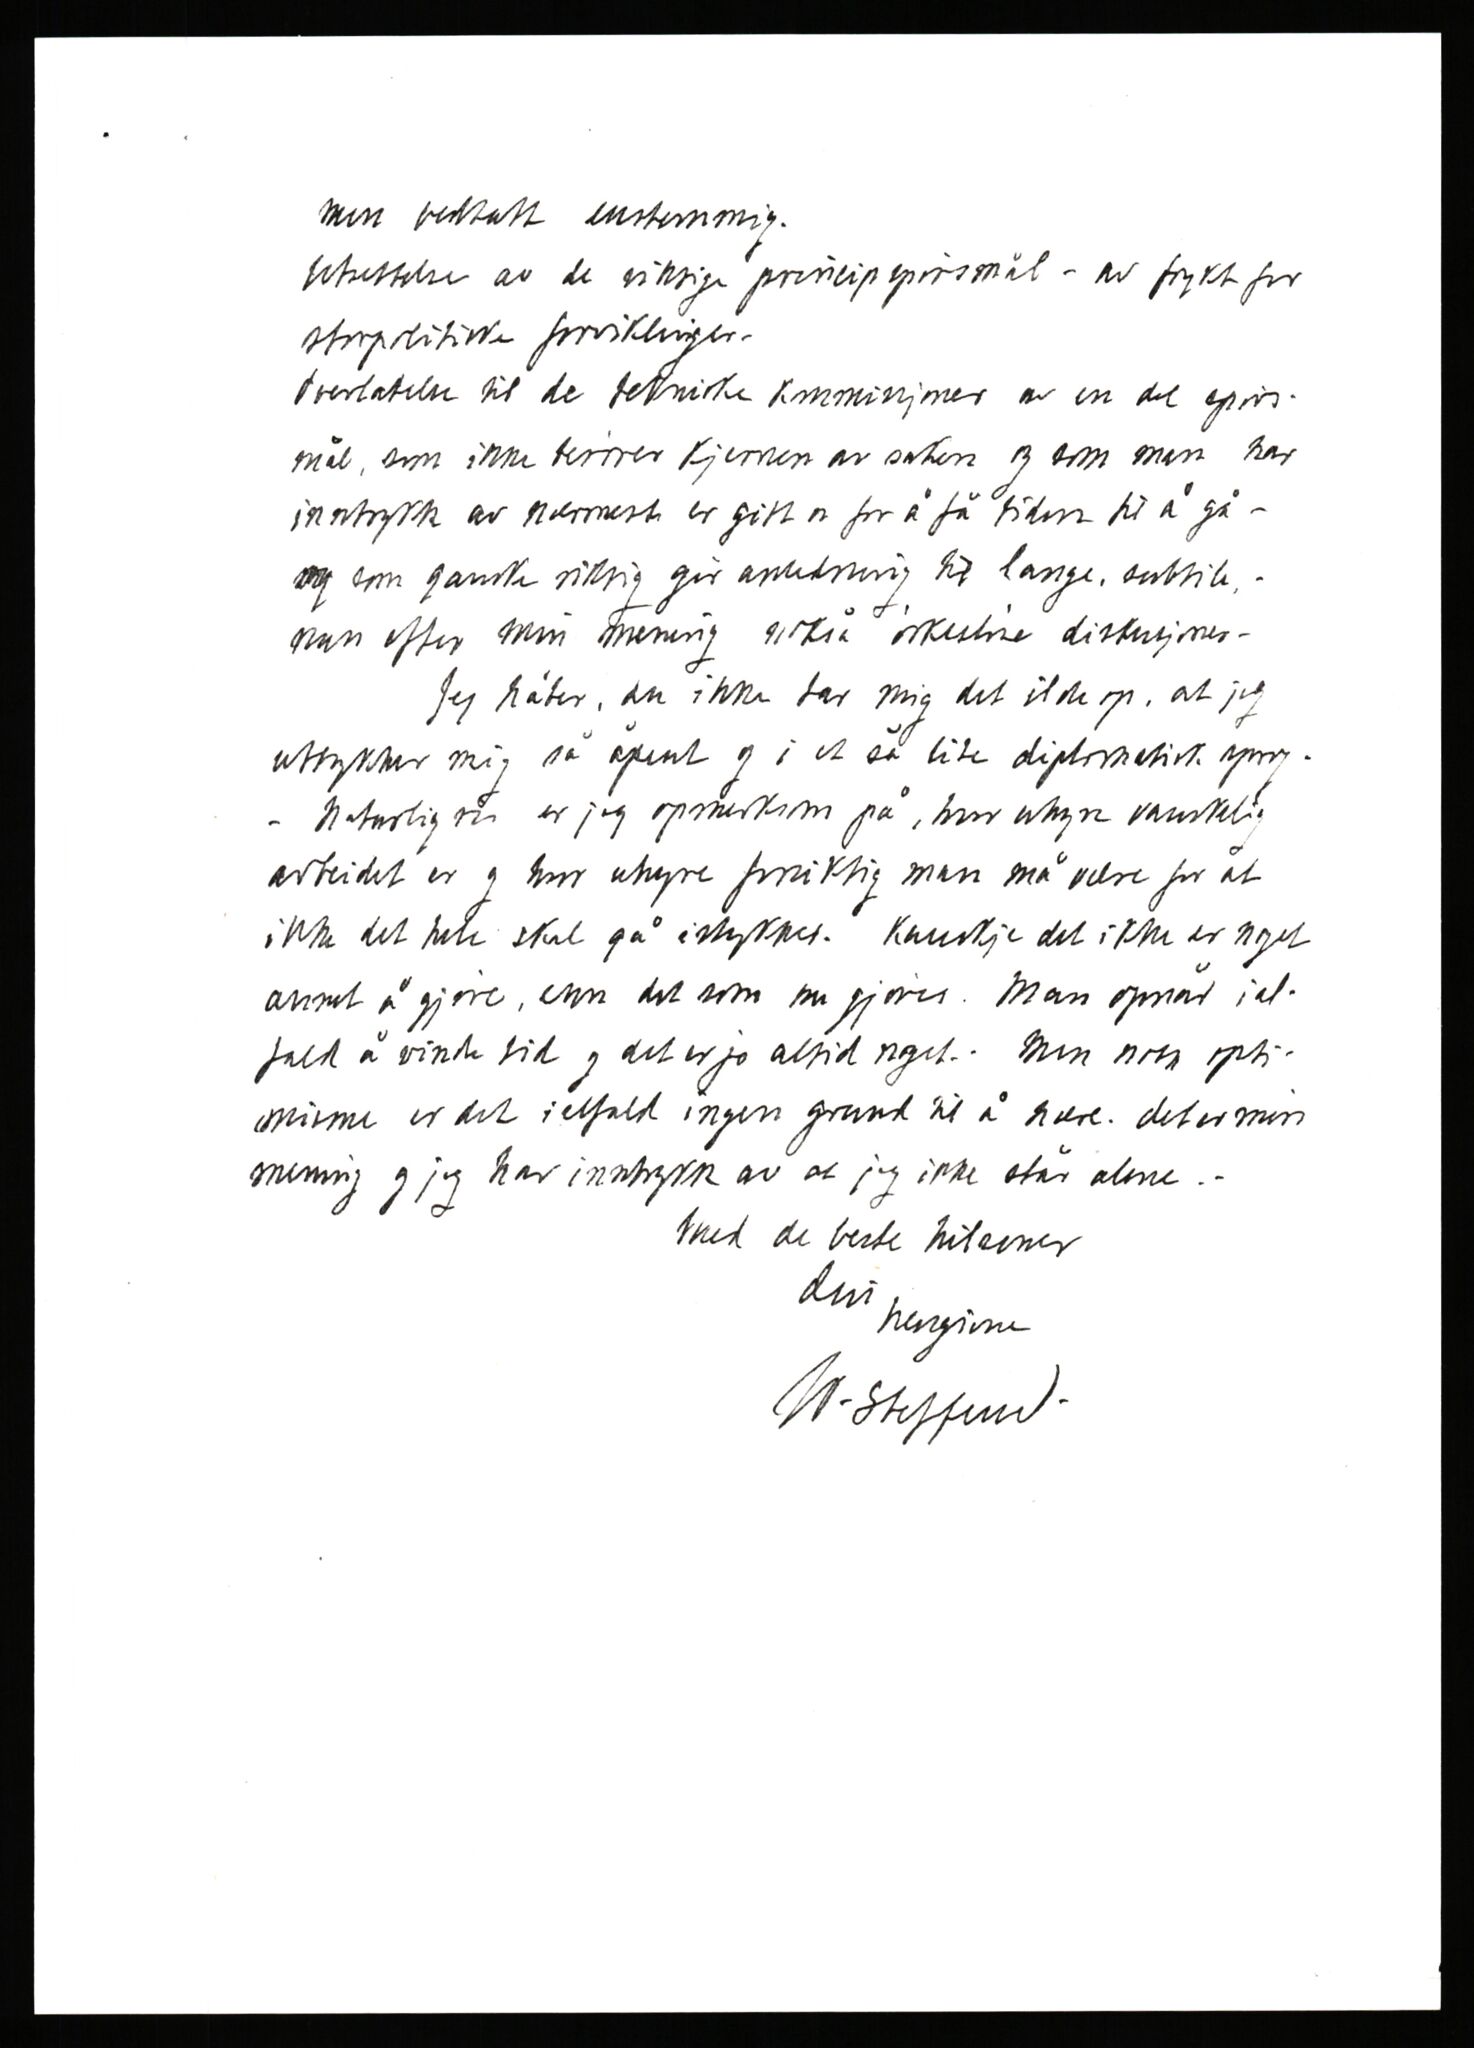 men vedtatt enstemmig.
Utsettelse av de viktige principspörsmål - av frykt for
storpolitiske forviklinger -
Overlatelse til de tekniske Kommisjoner av en del spörs-
mål, som ikke berörer kjernen av saken og som man har
inntrykk av nærmest er gitt for å få tiden til å gå -
og som ganske riktig gir anledning til lange, subtile, -
men efter min mening også örkeslöse diskusjoner -
Jeg håber, du ikke tar mig det ilde op, at jeg
uttrykker mig så åpent og i et så lite diplomatisk sprog.
- Naturligvis er jeg opmerksom på, hvor uhyre vanskelig
arbeidet er og hvor uhyre forsiktig man må være for at
ikke det hele skal gå istykker. Kanskje det ikke er noget
annet å gjöre, enn det som nu gjöres. Man opnår ial-
fald å vinde tid og det er jo altid noget. - Men noen opti-
misme er det ialfald ingen grund til å nære. det er min
mening og jeg har inntrykk av at jeg ikke står alene. -
Med de beste hilsener
din
hengivne
W. Steffens